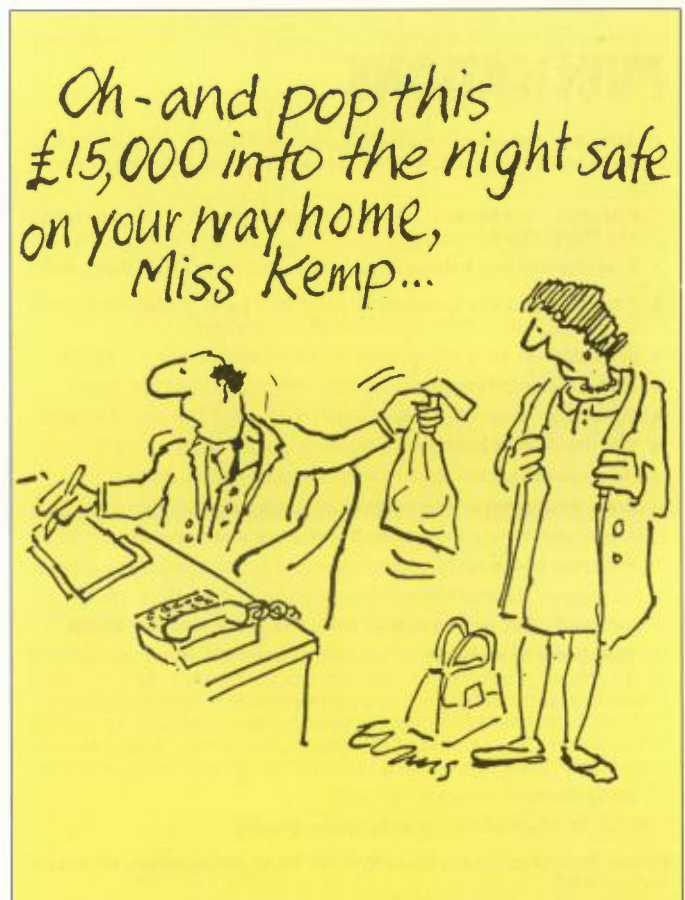 Oh - and pop this
£15,000 into the night safe
on your way home,
Miss Kemp...